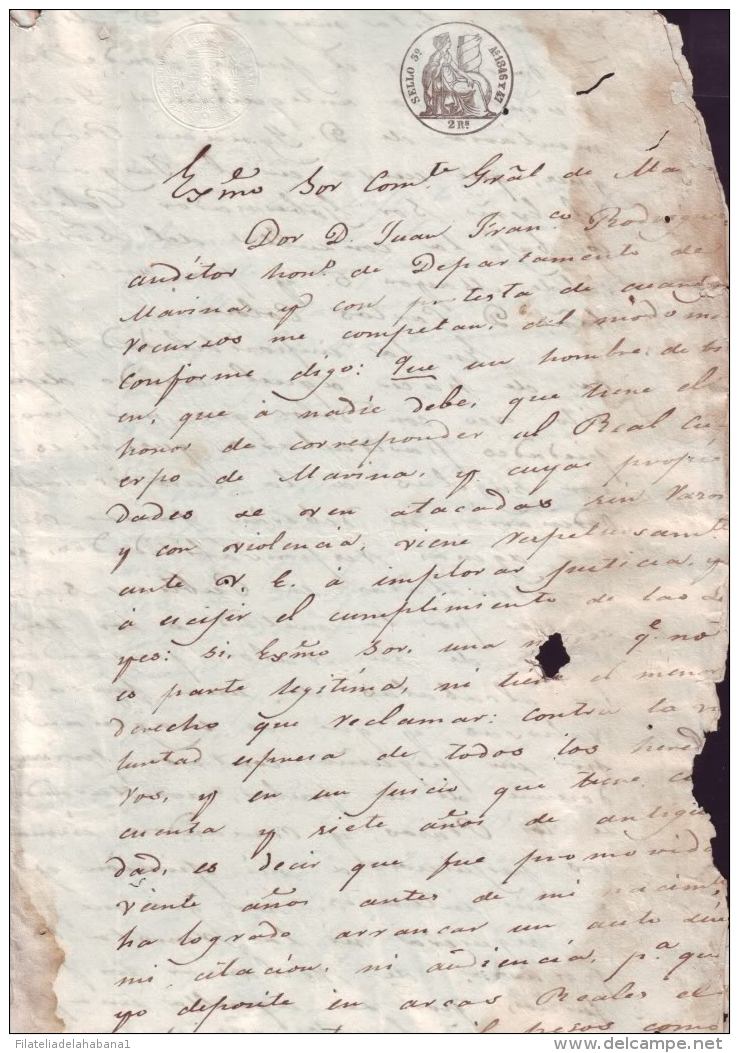 SELLO 3º Aˢ 1846 Y 47
2 Rˢ
Exmo Sor Comte Gral de Ma
Dor D. Juan Franco Rodrigu
auditor hono. de Departamento de
Marina, y con protesta de cuant
recursos me competan, del modo m
conforme digo: Que un hombre de bi
en, que á nadie debe, que tiene el
honor de corresponder al Real Cu-
erpo de Marina, y cuyas propie
dades se ven atacadas sin razon
y con violencia, viene respetuosamte
ante V. E. á implorar justicia, y
á ecsijir el cumplimiento de las le
yes: si, Exmo Sor, una qe. no
es parte legitima, ni tiene el menor
derecho que reclamar: contra la vo
luntad espresa de todos los hered
ros, y en un juicio que tiene
cuenta y siete años de antigue
dad, es decir que fue promovido
veinte años antes de mi nacimto
ha logrado arrancar un auto sin
mi citacion, ni audiencia, pa. que
yo deposite en arcas Reales el
pesos como
Filateliadelahabana1
delcampe.net